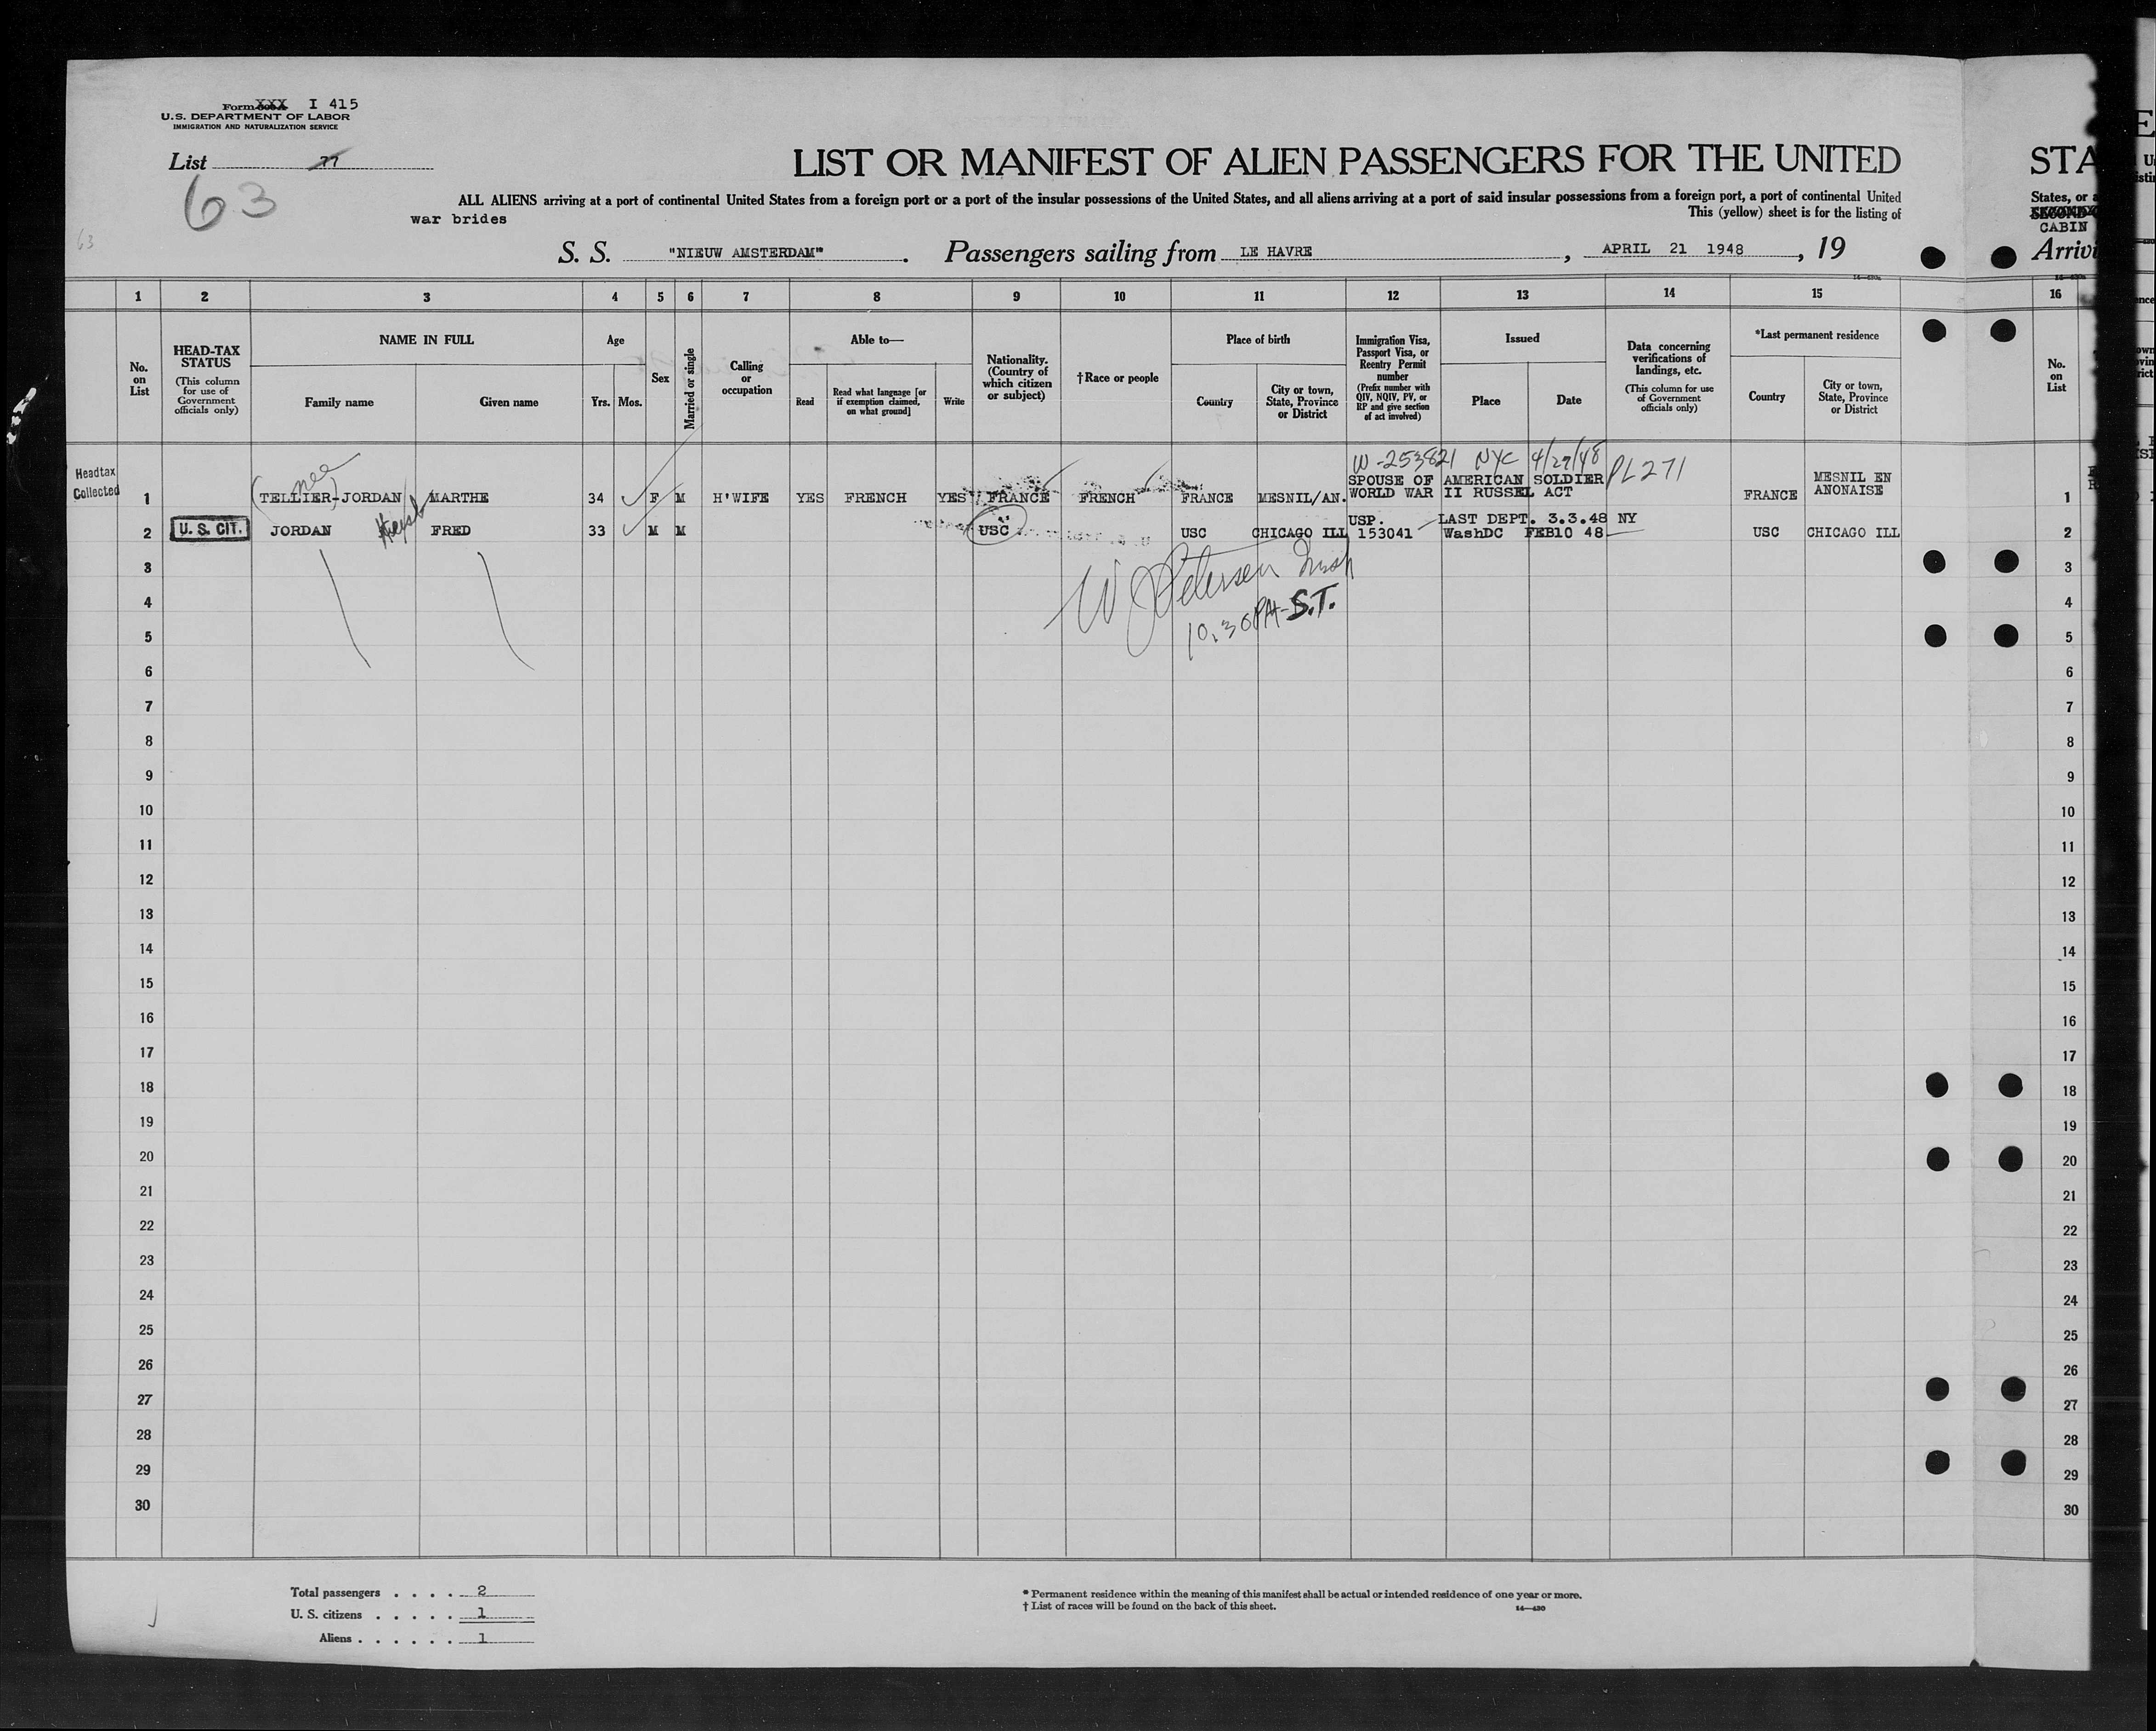 Form XXX I 415
U.S. DEPARTMENT OF LABOR
IMMIGRATION AND NATURALIZATION SERVICE
List 77
63
63
LIST OR MANIFEST OF ALIEN PASSENGERS FOR THE UNITED
STA
ALL ALIENS arriving at a port of continental United States from a foreign port or a port of the insular possessions of the United States, and all aliens arriving at a port of said insular possessions from a foreign port, a port of continental United
States, or a
war brides
This (yellow) sheet is for the listing of
CABIN
S. S. "NIEUW AMSTERDAM". Passengers sailing from LE HAVRE, APRIL 21 1948, 19
Arrivi
1 2 3 4 5 6 7 8 9 10 11 12 13 14 15 16
No. on List
HEAD-TAX STATUS
(This column for use of Government officials only)
NAME IN FULL
Family name
Given name
Age
Yrs.
Mos.
Sex
Married or single
Calling or occupation
Able to—
Read
Read what language [or if exemption claimed, on what ground]
Write
Nationality. (Country of which citizen or subject)
†Race or people
Place of birth
Country
City or town, State, Province or District
Immigration Visa, Passport Visa, or Reentry Permit number
(Prefix number with QIV, NQIV, PV, or RP and give section of act involved)
Issued
Place
Date
Data concerning verifications of landings, etc.
(This column for use of Government officials only)
*Last permanent residence
Country
City or town, State, Province or District
No. on List
W-253821 NYC 4/27/48 PL271
Headtax Collected
1 (née TELLIER)-JORDAN MARTHE 34 F M H'WIFE YES FRENCH YES FRANCE FRENCH FRANCE MESNIL/AN. SPOUSE OF AMERICAN SOLDIER WORLD WAR II RUSSEL ACT FRANCE MESNIL EN ANONAISE 1
2 U. S. CIT. JORDAN FRED 33 M M USC USC CHICAGO ILL USP. 153041 LAST DEPT. 3.3.48 NY WashDC FEB10 48 USC CHICAGO ILL 2
3 W Petersen 3
4 10.30PM-S.T. 4
5 5
6 6
7 7
8 8
9 9
10 10
11 11
12 12
13 13
14 14
15 15
16 16
17 17
18 18
19 19
20 20
21 21
22 22
23 23
24 24
25 25
26 26
27 27
28 28
29 29
30 30
Total passengers . . . . 2
U. S. citizens . . . . . 1
Aliens . . . . . . 1
* Permanent residence within the meaning of this manifest shall be actual or intended residence of one year or more.
† List of races will be found on the back of this sheet.
14—430